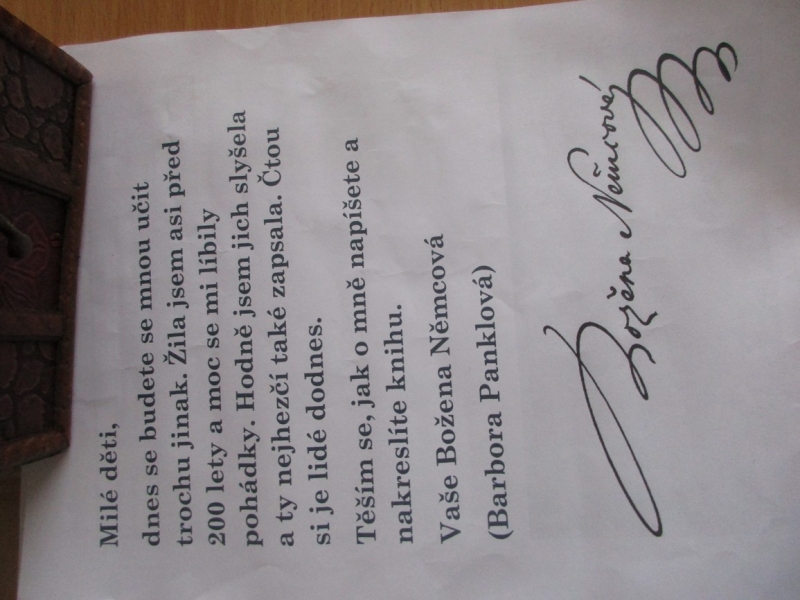 Milé děti,
dnes se budete se mnou učit
trochu jinak. Žila jsem asi před
200 lety a moc se mi líbily
pohádky. Hodně jsem jich slyšela
a ty nejhezčí také zapsala. Čtou
si je lidé dodnes.
Těším se, jak o mně napíšete a
nakreslíte knihu.
Vaše Božena Němcová
(Barbora Panklová)
Božena Němcová